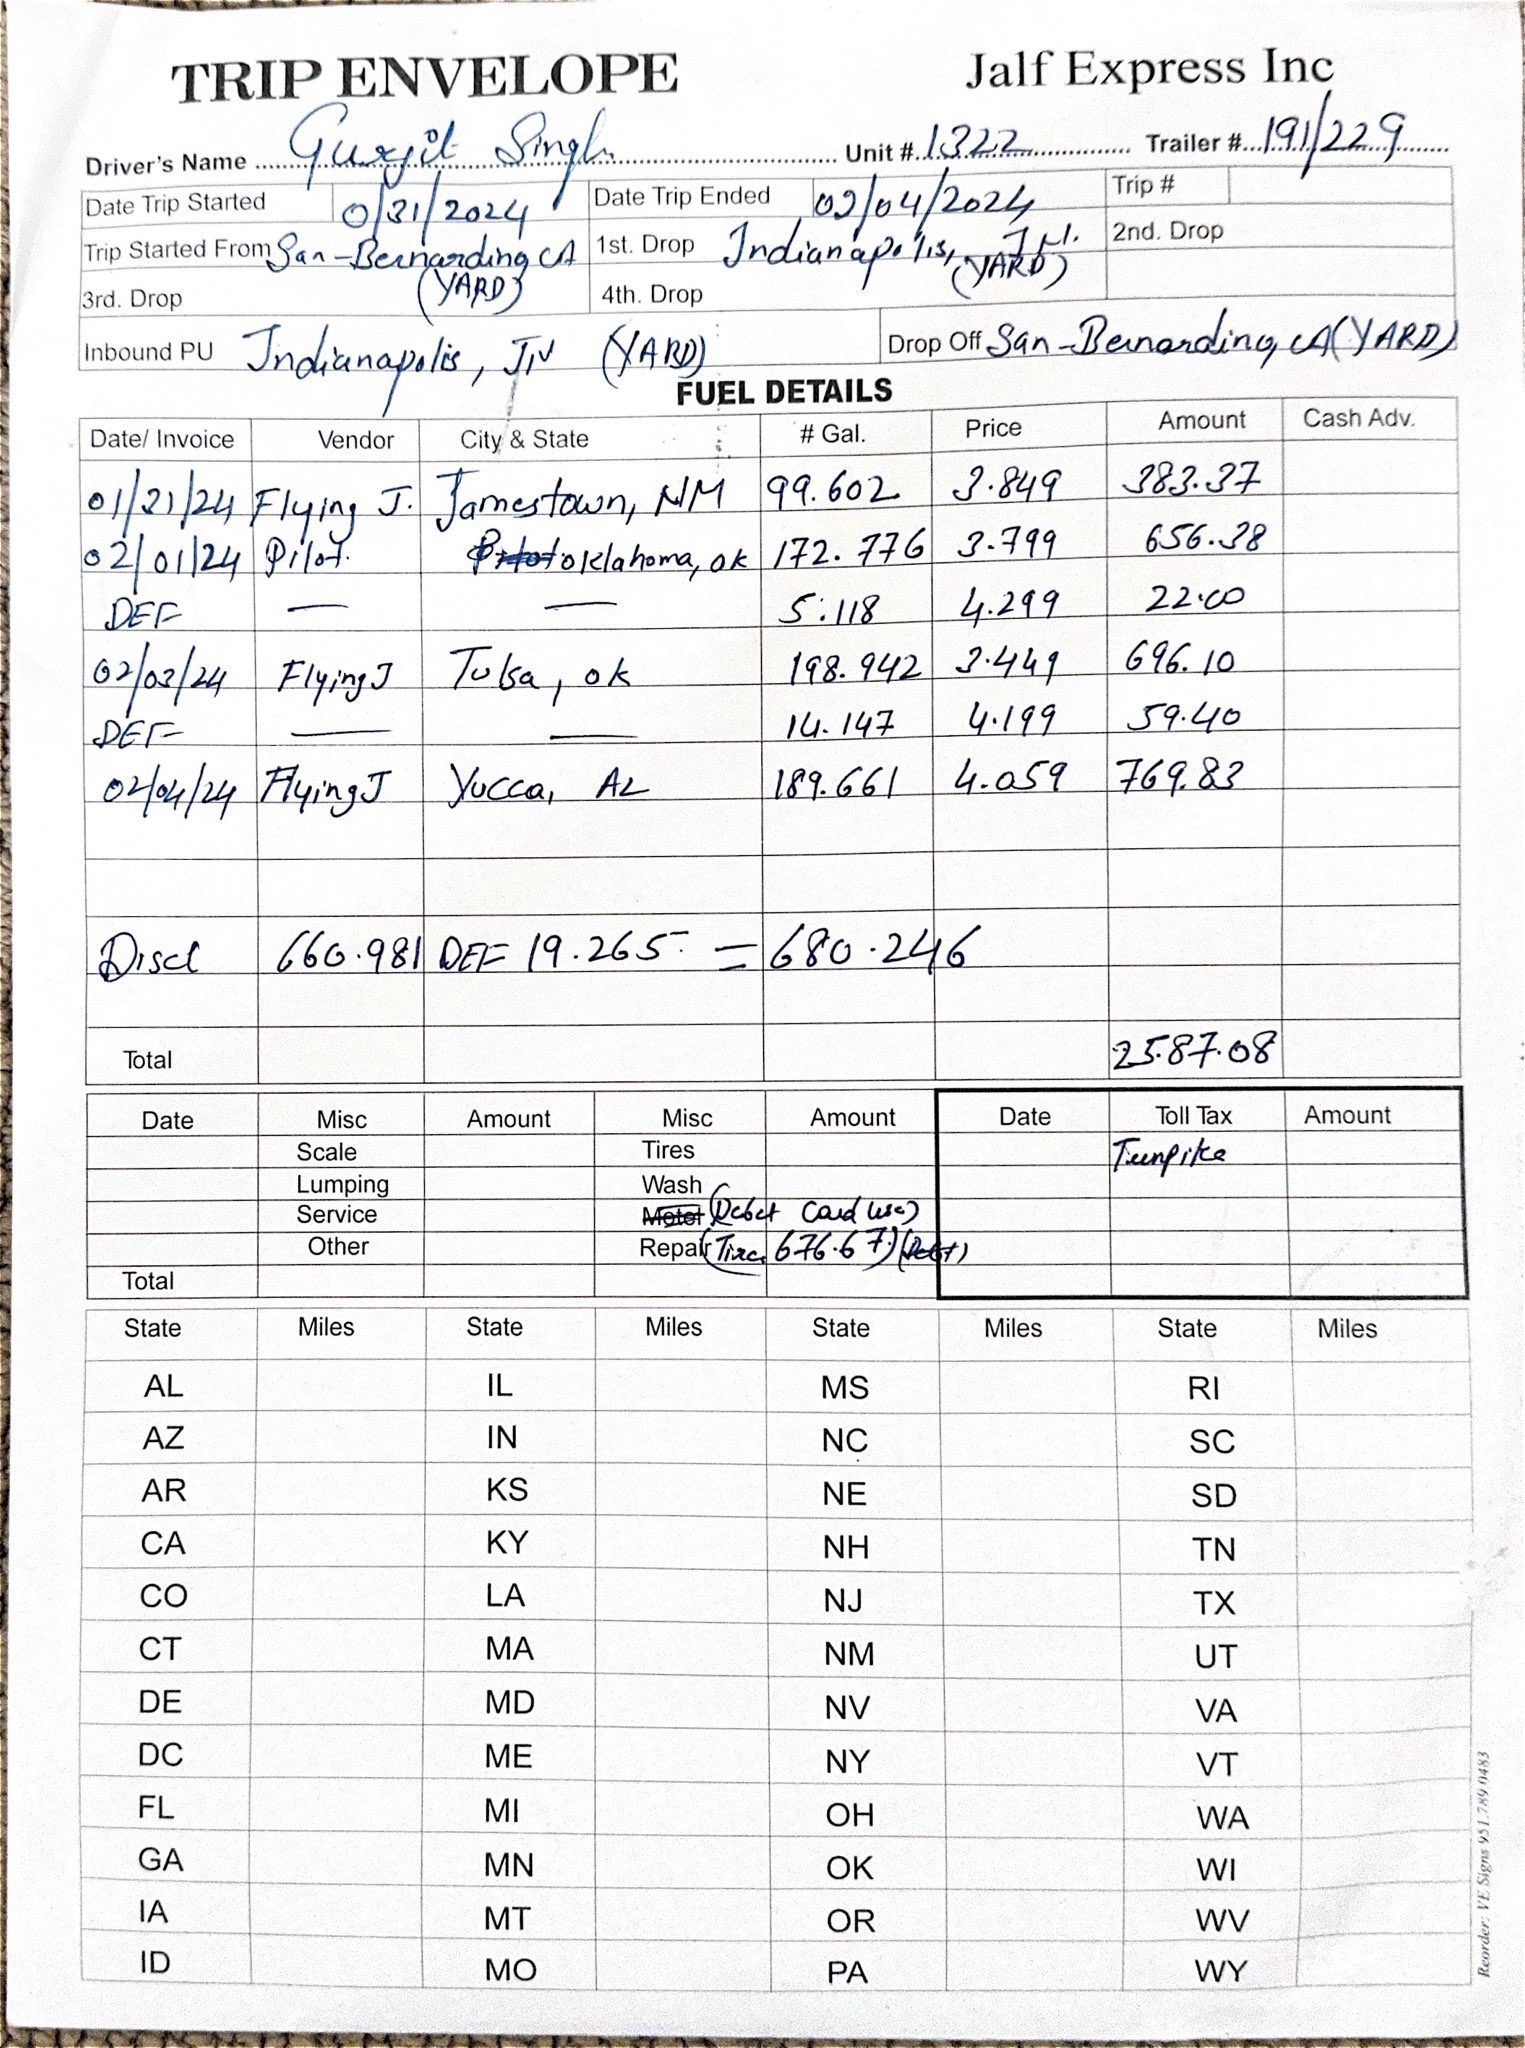 TRIP ENVELOPE Jalf Express Inc
Driver's Name Gurjit Singh Unit # 1322 Trailer # 191/229
Date Trip Started 0/31/2024 Date Trip Ended 02/04/2024 Trip #
Trip Started From San-Bernarding CA (YARD) 1st. Drop Indianapolis, (YARD) 2nd. Drop
3rd. Drop 4th. Drop
Inbound PU Indianapolis, IN (YARD) Drop Off San-Bernarding, CA (YARD)
FUEL DETAILS
Date/ Invoice Vendor City & State # Gal. Price Amount Cash Adv.
01/31/24 Flying J. Jamestown, NM 99.602 3.849 383.37
02/01/24 Pilot. Oklahoma, OK 172.776 3.799 656.38
DEF — — 5.118 4.299 22.00
02/03/24 Flying J Tulsa, OK 198.942 3.449 696.10
DEF — — 14.147 4.199 59.40
02/04/24 Flying J Yucca, AZ 189.661 4.059 769.83
Discl 660.981 DEF 19.265 = 680.246
Total 2587.08
Date Misc Amount Misc Amount Date Toll Tax Amount
Scale Tires Turnpike
Lumping Wash
Service Motel (Debet Card use)
Other Repair (Tire. 676.67) (Debt)
Total
State Miles State Miles State Miles State Miles
AL IL MS RI
AZ IN NC SC
AR KS NE SD
CA KY NH TN
CO LA NJ TX
CT MA NM UT
DE MD NV VA
DC ME NY VT
FL MI OH WA
GA MN OK WI
IA MT OR WV
ID MO PA WY
Reorder: VE Signs 951.789.0483